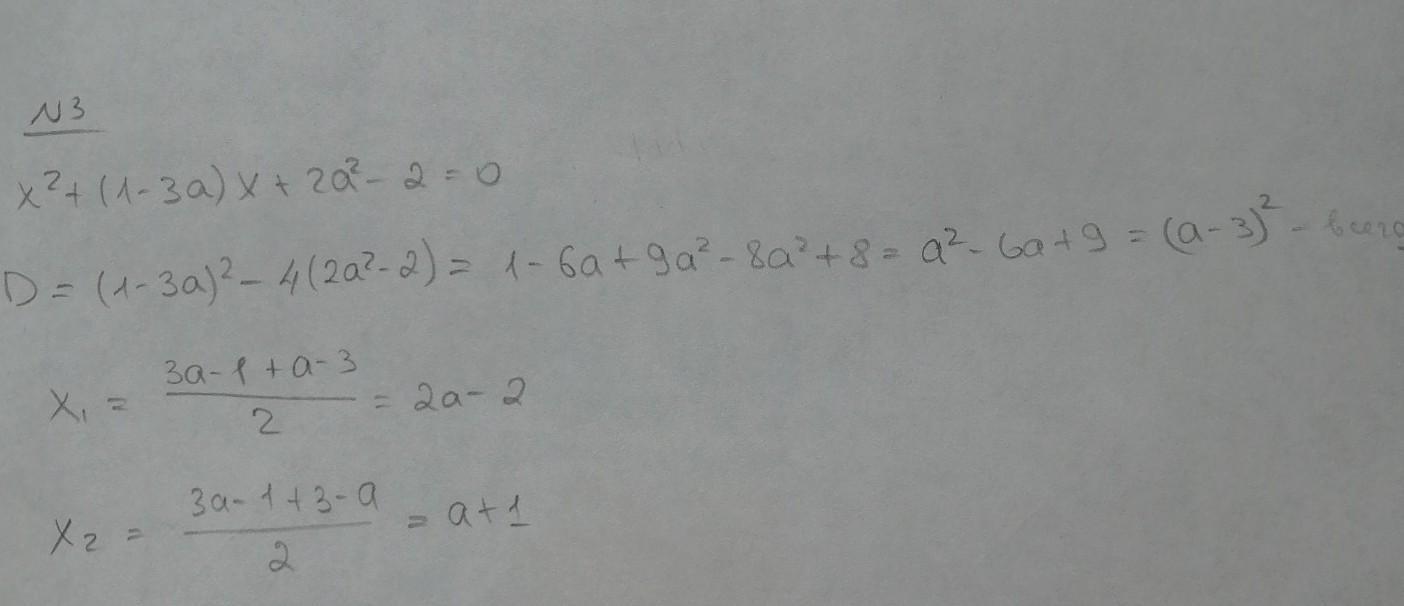 N3
x²+(1-3a)x+2a²-2=0
D=(1-3a)²-4(2a²-2)=1-6a+9a²-8a²+8=a²-6a+9=(a-3)²-
x₁ = (3a-1+a-3)/2 = 2a-2
x₂ = (3a-1+3-a)/2 = a+1